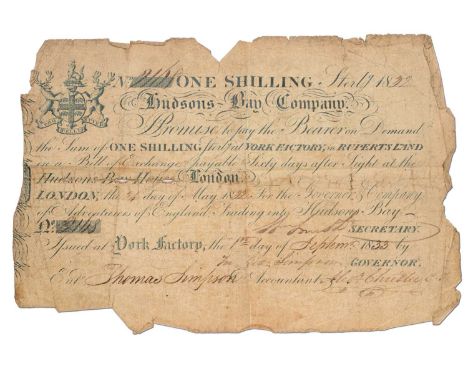 No ONE SHILLING Sterlg 1832
Hudsons Bay Company.
I Promise to pay the Bearer on Demand
the Sum of ONE SHILLING Sterlg at YORK FACTORY, in RUPERTS LAND
in a Bill of Exchange payable Sixty days after Sight at the
Hudsons Bay House London.
LONDON, the day of May 1832 For the Governor & Company
of Adventurers of England Trading into Hudsons Bay
No. W Smith SECRETARY.
Issued at York Factory, the 1st day of Septemr. 1833 by
Geo Simpson GOVERNOR.
Entd. Thomas Simpson Accountant